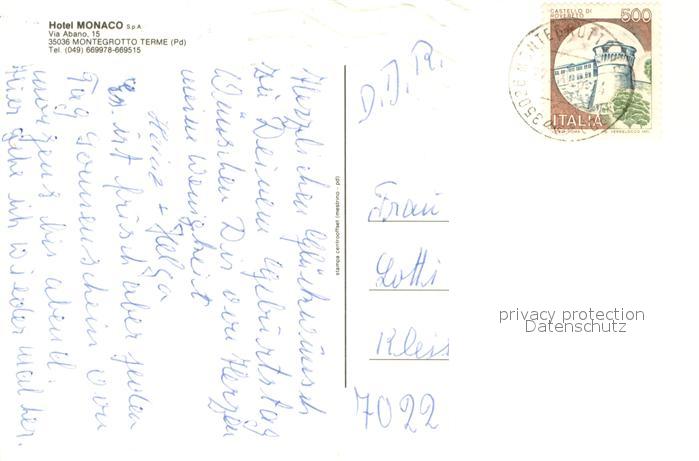 Hotel MONACO S.p.A.
Via Abano, 15
35036 MONTEGROTTO TERME (Pd)
Tel. (049) 669978-669515
Herzlichen Glückwunsch
zu Deinem Geburtstag
Wünschen Dir von Herzen
meine Wenigkeit
Heinz + Helga
Es ist frisch aber jeden
Tag Sonnenschein von
morgens bis abend.
Hier gehe ich wieder mal her.
stampa centrooffset (mestrino - pd)
D.D.R.
Frau
Lotti
Kleis
7022
CASTELLO DI
ROVERETO
500
ITALIA
35036 MONTEGROTTO
privacy protection
Datenschutz